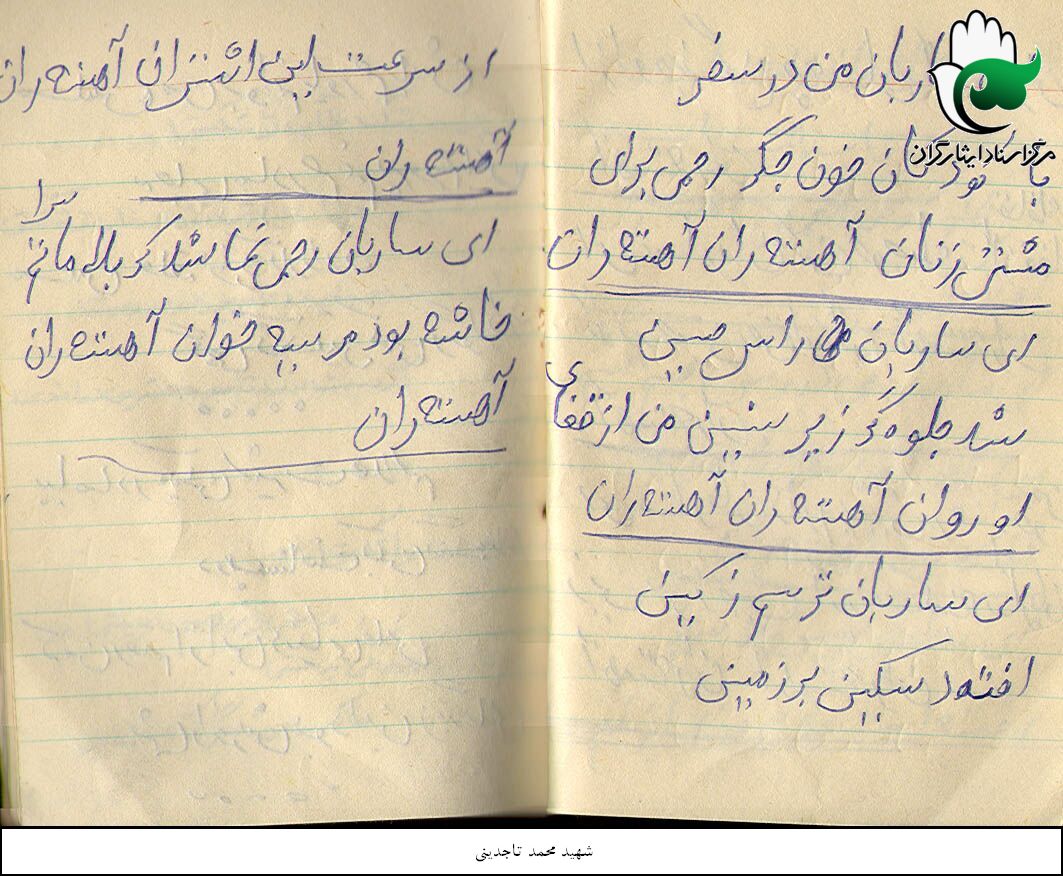 ساربان من در سفر
با کودکان خون جگر رحمی برای
مشتی زنان آهسته ران آهسته ران
ای ساربان راس حسین
شد جلوه گر زیب سنین من از قفای
او روان آهسته ران آهسته ران
ای ساربان ترسم ز کین
افتد سکین بر زمین
از سرعت این اشتران آهسته ران
آهسته ران
ای ساربان رحمی نما شد کربلا ماتم سرا
خاشه بود مرسیه خوان آهسته ران
آهسته ران
مرکز اسناد ایثارگران
شهید محمد تاجدینی